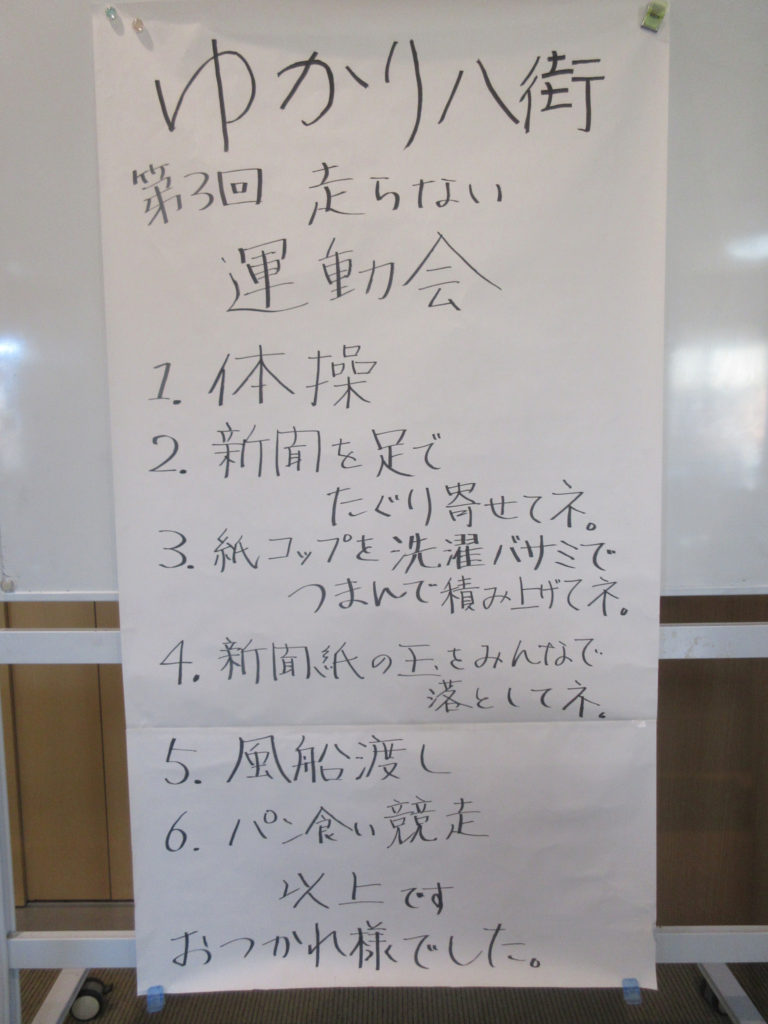 ゆかり八街
第3回 走らない
運動会
1. 体操
2. 新聞を足で
たぐり寄せてネ。
3. 紙コップを洗濯バサミで
つまんで積み上げてネ。
4. 新聞紙の玉をみんなで
落としてネ。
5. 風船渡し
6. パン食い競走
以上です
おつかれ様でした。